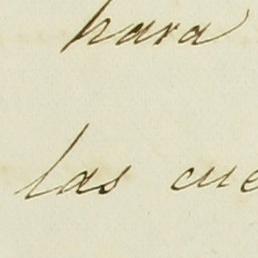 para
las cue